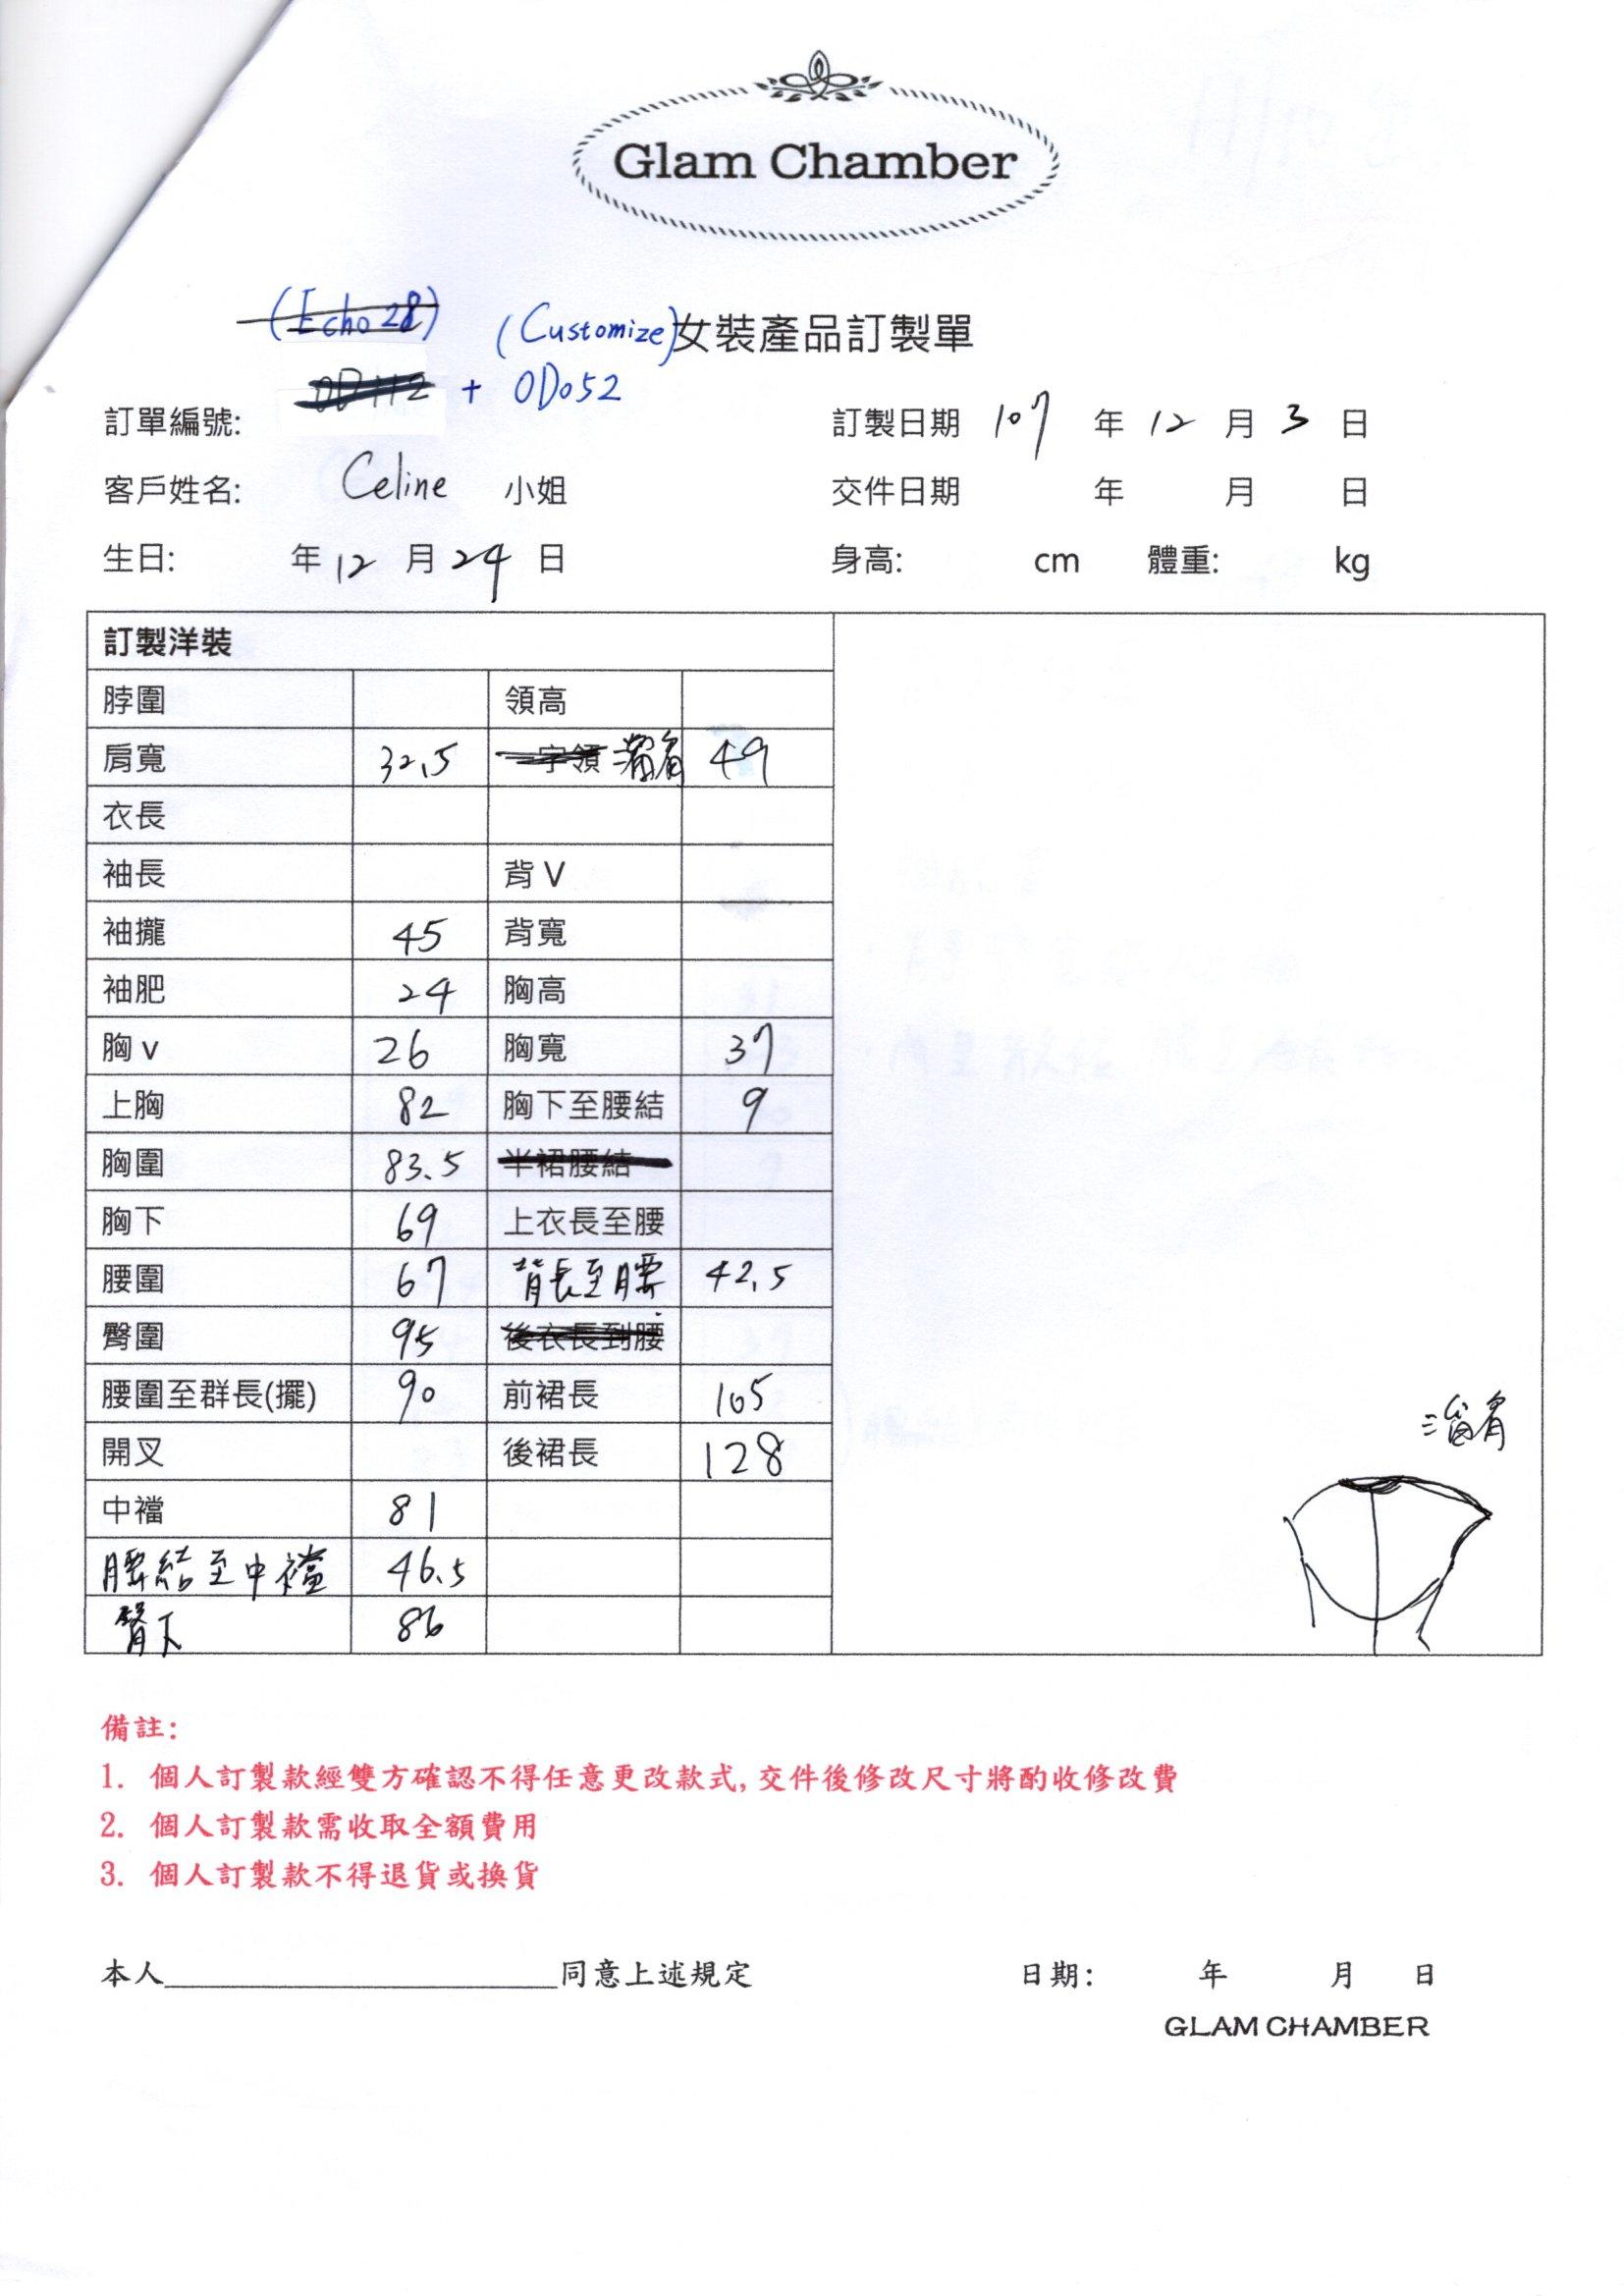 Glam Chamber
(Echo 28) (Customize) 女裝產品訂製單
OD112 + OD052
訂單編號: 訂製日期 107 年 12 月 3 日
客戶姓名: Celine 小姐 交件日期 年 月 日
生日: 年 12 月 24 日 身高: cm 體重: kg
訂製洋裝
脖圍 領高
肩寬 32.5 一字領 滿肩 49
衣長
袖長 背 V
袖攏 45 背寬
袖肥 24 胸高
胸 v 26 胸寬 37
上胸 82 胸下至腰結 9
胸圍 83.5 半裙腰結
胸下 69 上衣長至腰
腰圍 67 背長至腰 42.5
臀圍 95 後衣長到腰
腰圍至群長(擺) 90 前裙長 105
開叉 後裙長 128
中襠 81
腰結至中襠 46.5
臀下 86
備註:
1. 個人訂製款經雙方確認不得任意更改款式, 交件後修改尺寸將酌收修改費
2. 個人訂製款需收取全額費用
3. 個人訂製款不得退貨或換貨
本人 同意上述規定 日期: 年 月 日
GLAM CHAMBER